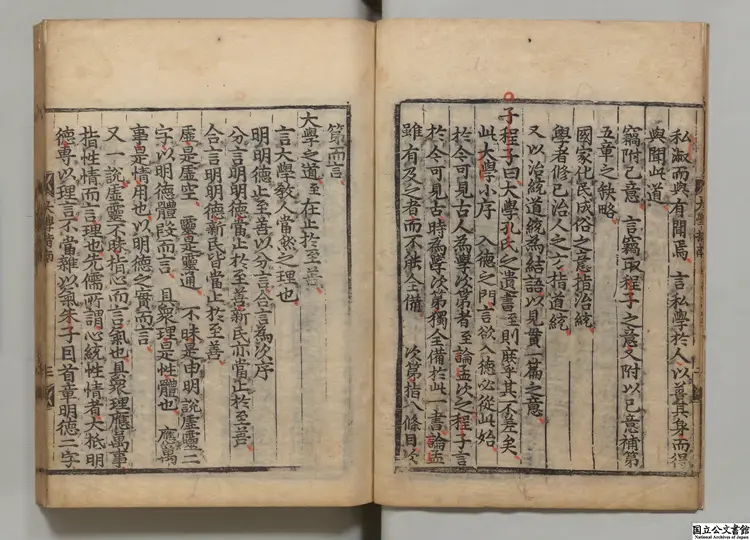 私淑而與有聞焉 言私學於人以善其身而得
與聞此道
竊附己意 言竊取程子之意又附以己意補第
五章之缺略
國家化民成俗之意指治統
學者修己治人之方指道統
又以治統道統為結語以見貫一篇之意
子程子曰大學孔氏之遺書至則庶乎其不差矣
此大學小序 入德之門言欲入德必從此始
於今可見古人為學次第者至論孟次之程子言
於今可見古時為學次第獨全備於此一書論孟
雖有及之者而不能全備 次第指八條目次
第而言
大學之道至在止於至善
言大學教人當然之理也
明明德止至善以分言合言為次序
分言明明德當止於至善新民亦當止於至善
合言明明德新民皆當止於至善
虛是虛空 靈是靈通 不昧是申明說虛靈二
字以明德體段而言 具衆理是性體也 應萬
事是情用也以明德之實而言
又一說虛靈不昧指心而言氣也具衆理應萬事
指性情而言理也先儒所謂心統性情者大抵明
德專以理言不當雜以氣朱子曰首章明德二字
大學指南
國立公文書館
National Archives of Japan